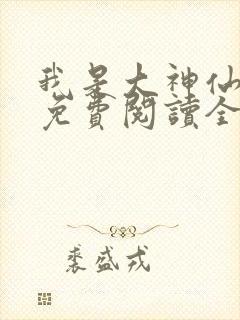 我是大神仙
免費閱讀全
裘盛戎